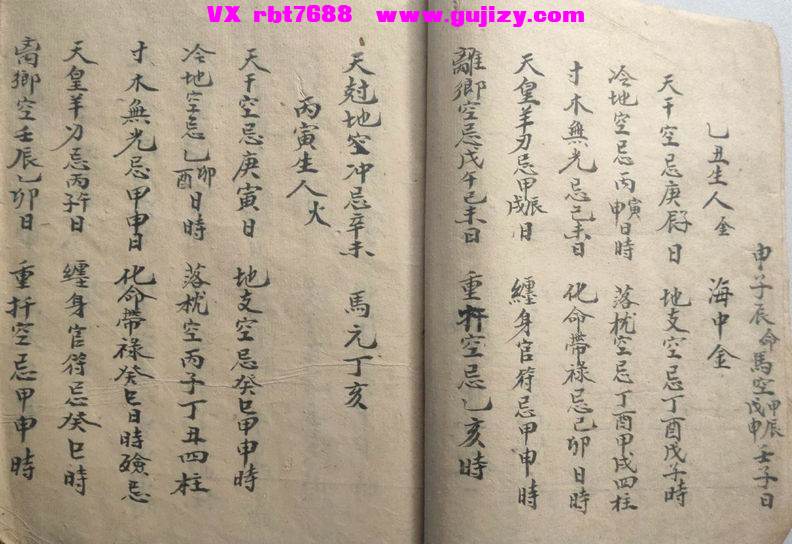 VX rbt7688 www.gujizy.com
申子辰命馬空甲辰戊申壬子日
乙丑生人金 海中金
天干空忌庚辰日 地支空忌丁酉戊子時
冷地空忌丙寅申日時 落枕空忌丁酉甲戌四柱
寸木無光忌己未日 化命帶祿忌己卯日時
天皇羊刃忌甲辰戌日 纏身官符忌甲申時
離鄉空忌戊午己未日 重拆空忌乙亥時
天尅地空冲忌辛未 馬元丁亥
丙寅生人火
天干空忌庚寅日 地支空忌癸巳甲申時
冷地空忌乙卯酉日時 落枕空丙子丁丑四柱
寸木無光忌甲申日 化命帶祿癸巳日時殮忌
天皇羊刃忌丙子午日 纏身官符忌癸巳時
离鄉空壬辰乙卯日 重拆空忌甲申時